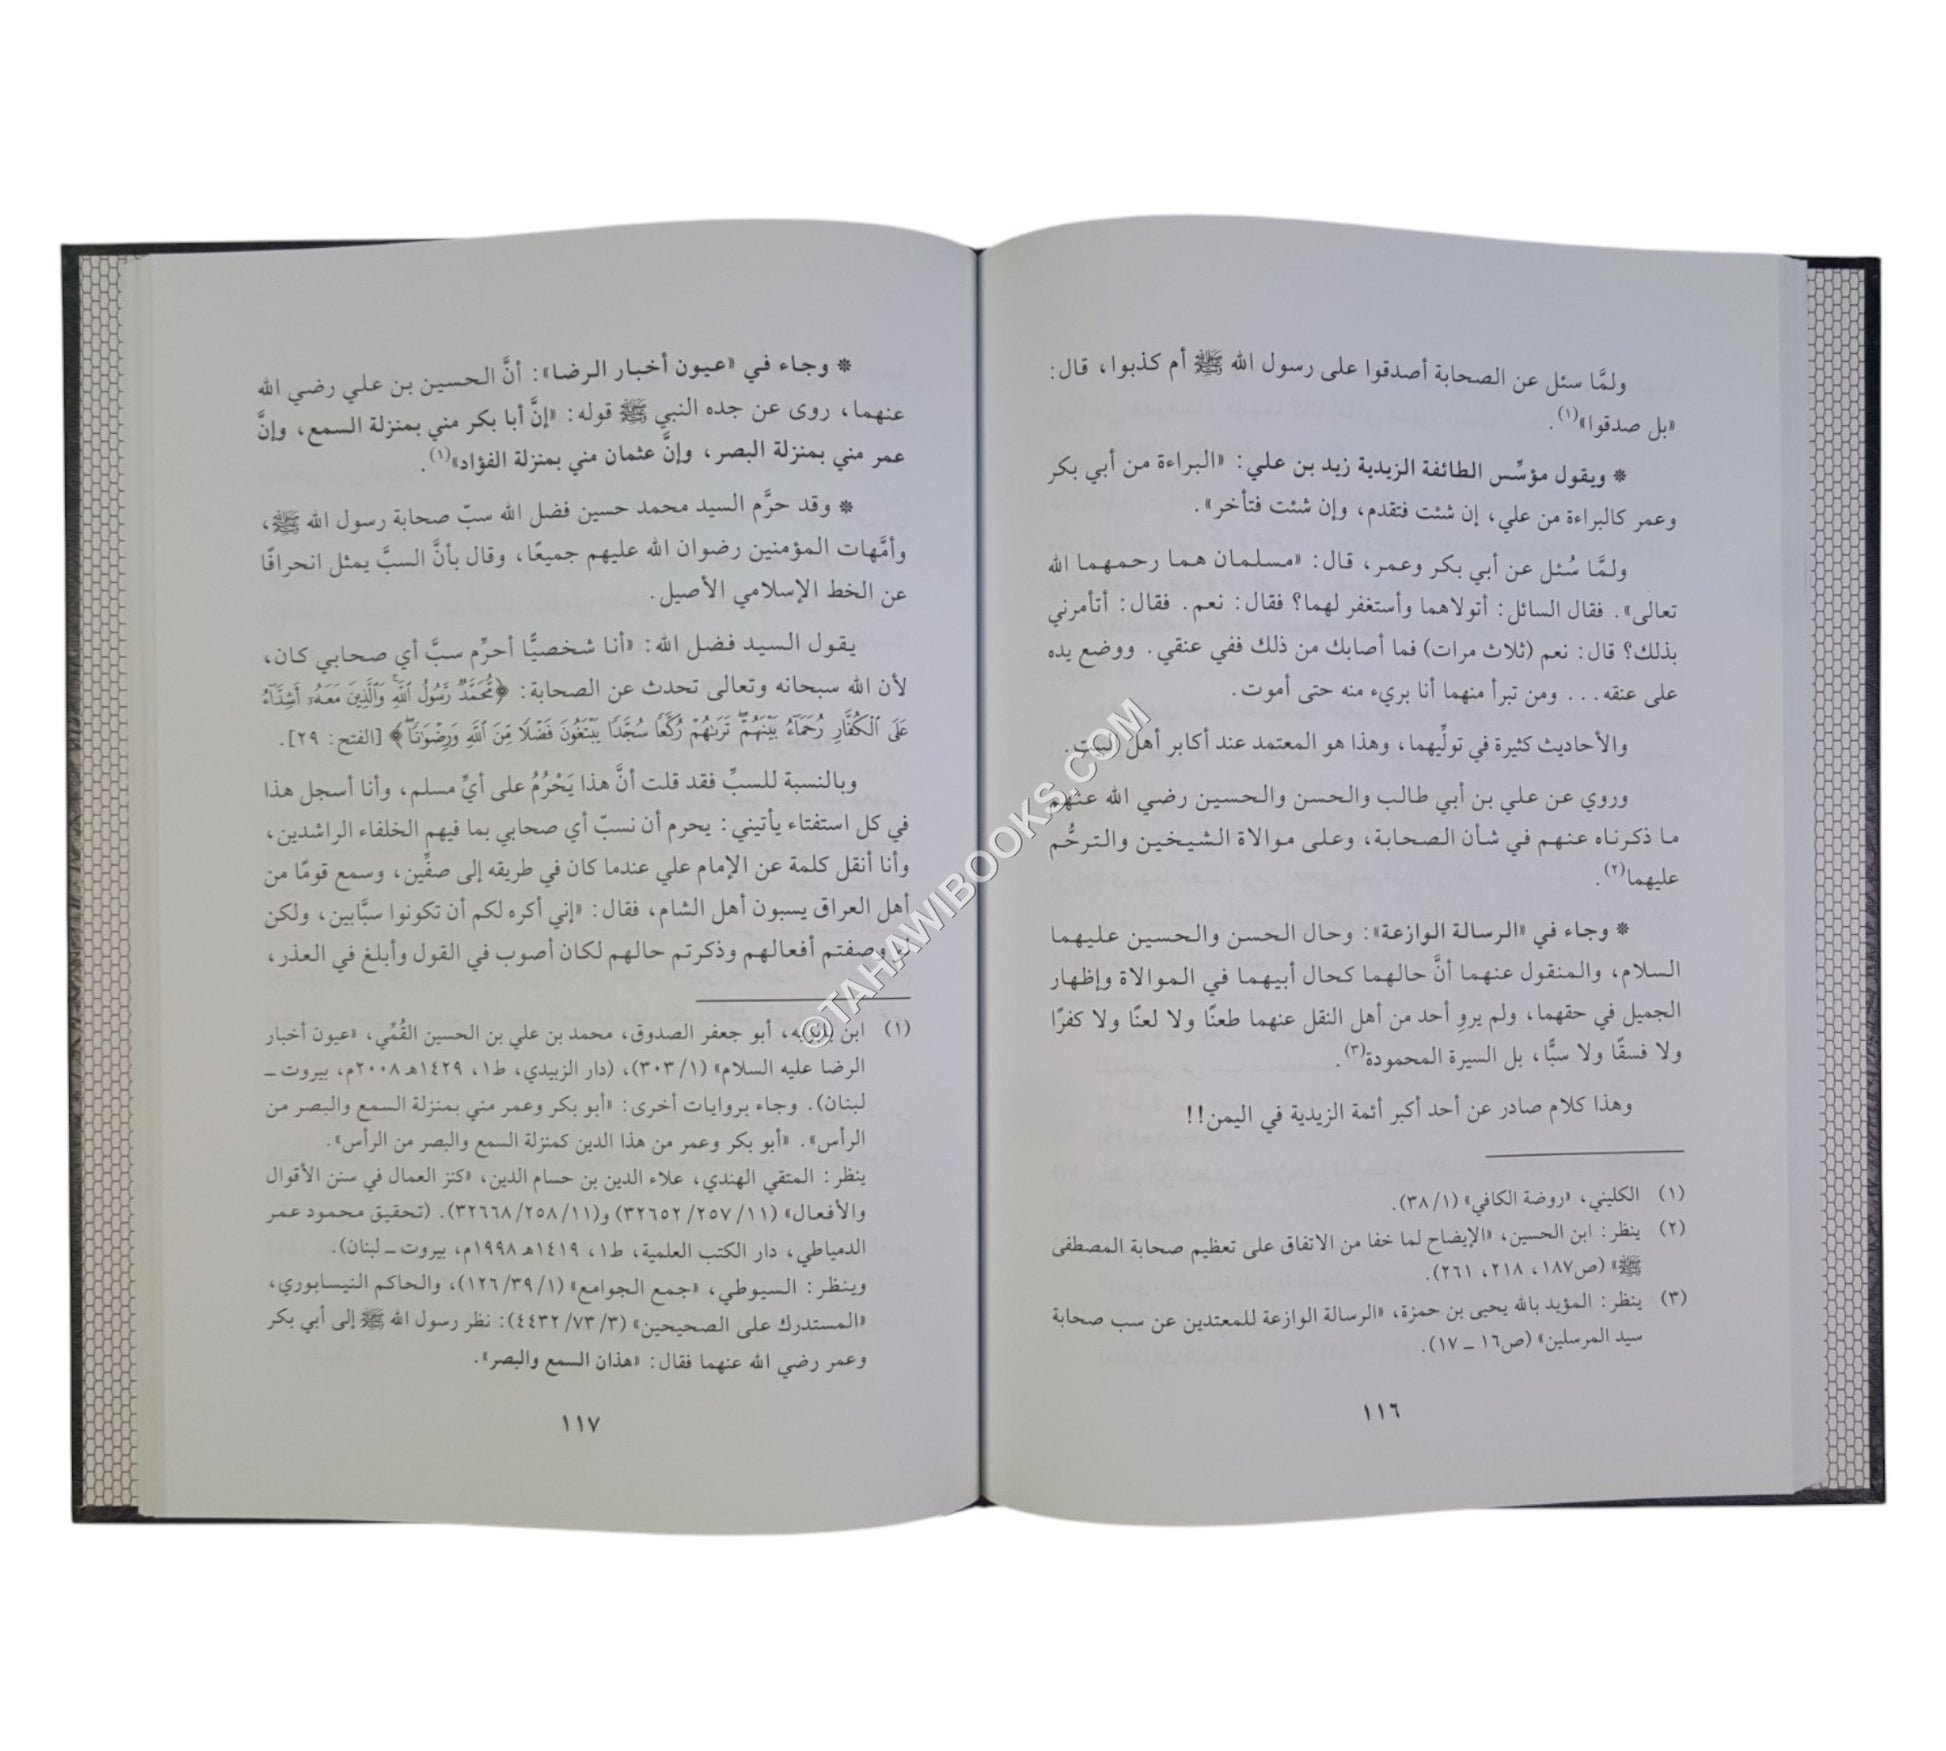 ولمَّا سئل عن الصحابة أصدقوا على رسول الله ﷺ أم كذبوا، قال:
«بل صدقوا»(١).
* ويقول مؤسِّس الطائفة الزيدية زيد بن علي: «البراءة من أبي بكر
وعمر كالبراءة من علي، إن شئت فتقدم، وإن شئت فتأخر».
ولمَّا سُئل عن أبي بكر وعمر، قال: «مسلمان هما رحمهما الله
تعالى». فقال السائل: أتولاهما وأستغفر لهما؟ فقال: نعم. فقال: أتأمرني
بذلك؟ قال: نعم (ثلاث مرات) فما أصابك من ذلك ففي عنقي. ووضع يده
على عنقه... ومن تبرأ منهما أنا بريء منه حتى أموت.
والأحاديث كثيرة في تولِّيهما، وهذا هو المعتمد عند أكابر أهل البيت.
وروي عن علي بن أبي طالب والحسن والحسين رضي الله عنهم
ما ذكرناه عنهم في شأن الصحابة، وعلى موالاة الشيخين والترحُّم
عليهما(٢).
* وجاء في «الرسالة الوازعة»: وحال الحسن والحسين عليهما
السلام، والمنقول عنهما أنَّ حالهما كحال أبيهما في الموالاة وإظهار
الجميل في حقهما، ولم يروِ أحد من أهل النقل عنهما طعنًا ولا لعنًا ولا كفرًا
ولا فسقًا ولا سبًّا، بل السيرة المحمودة(٣).
وهذا كلام صادر عن أحد أكبر أئمة الزيدية في اليمن!!
(١) الكليني، «روضة الكافي» (٣٨/١).
(٢) ينظر: ابن الحسين، «الإيضاح لما خفا من الاتفاق على تعظيم صحابة المصطفى
ﷺ» (ص١٨٧، ٢١٨، ٢٦١).
(٣) ينظر: المؤيد بالله يحيى بن حمزة، «الرسالة الوازعة للمعتدين عن سب صحابة
سيد المرسلين» (ص١٦ ـ ١٧).
١١٦
* وجاء في «عيون أخبار الرضا»: أنَّ الحسين بن علي رضي الله
عنهما، روى عن جده النبي ﷺ قوله: «إنَّ أبا بكر مني بمنزلة السمع، وإنَّ
عمر مني بمنزلة البصر، وإنَّ عثمان مني بمنزلة الفؤاد»(١).
* وقد حرَّم السيد محمد حسين فضل الله سبّ صحابة رسول الله ﷺ،
وأمَّهات المؤمنين رضوان الله عليهم جميعًا، وقال بأنَّ السبَّ يمثل انحرافًا
عن الخط الإسلامي الأصيل.
يقول السيد فضل الله: «أنا شخصيًّا أحرِّم سبَّ أي صحابي كان،
لأن الله سبحانه وتعالى تحدث عن الصحابة: ﴿مُّحَمَّدٌ رَّسُولُ ٱللَّهِ وَٱلَّذِينَ مَعَهُۥٓ أَشِدَّآءُ
عَلَى ٱلْكُفَّارِ رُحَمَآءُ بَيْنَهُمْ تَرَىٰهُمْ رُكَّعًا سُجَّدًا يَبْتَغُونَ فَضْلًا مِّنَ ٱللَّهِ وَرِضْوَٰنًا﴾ [الفتح: ٢٩].
وبالنسبة للسبِّ فقد قلت أنَّ هذا يَحْرُمُ على أيِّ مسلم، وأنا أسجل هذا
في كل استفتاء يأتيني: يحرم أن نسبّ أي صحابي بما فيهم الخلفاء الراشدين،
وأنا أنقل كلمة عن الإمام علي عندما كان في طريقه إلى صفِّين، وسمع قومًا من
أهل العراق يسبون أهل الشام، فقال: «إني أكره لكم أن تكونوا سبَّابين، ولكن
لو وصفتم أفعالهم وذكرتم حالهم لكان أصوب في القول وأبلغ في العذر،
(١) ابن بابويه، أبو جعفر الصدوق، محمد بن علي بن الحسين القُمِّي، «عيون أخبار
الرضا عليه السلام» (٣٠٣/١)، (دار الزبيدي، ط١، ١٤٢٩هـ ٢٠٠٨م، بيروت ـ
لبنان). وجاء بروايات أخرى: «أبو بكر وعمر مني بمنزلة السمع والبصر من
الرأس». «أبو بكر وعمر من هذا الدين كمنزلة السمع والبصر من الرأس».
ينظر: المتقي الهندي، علاء الدين بن حسام الدين، «كنز العمال في سنن الأقوال
والأفعال» (١١/ ٢٥٧/ ٣٢٦٥٢) و(١١/ ٢٥٨/ ٣٢٦٦٨). (تحقيق محمود عمر
الدمياطي، دار الكتب العلمية، ط١، ١٤١٩هـ ١٩٩٨م، بيروت ـ لبنان).
وينظر: السيوطي، «جمع الجوامع» (١/ ٣٩/ ١٢٦)، والحاكم النيسابوري،
«المستدرك على الصحيحين» (٣/ ٧٣/ ٤٤٣٢): نظر رسول الله ﷺ إلى أبي بكر
وعمر رضي الله عنهما فقال: «هذان السمع والبصر».
١١٧
©TAHAWIBOOKS.COM